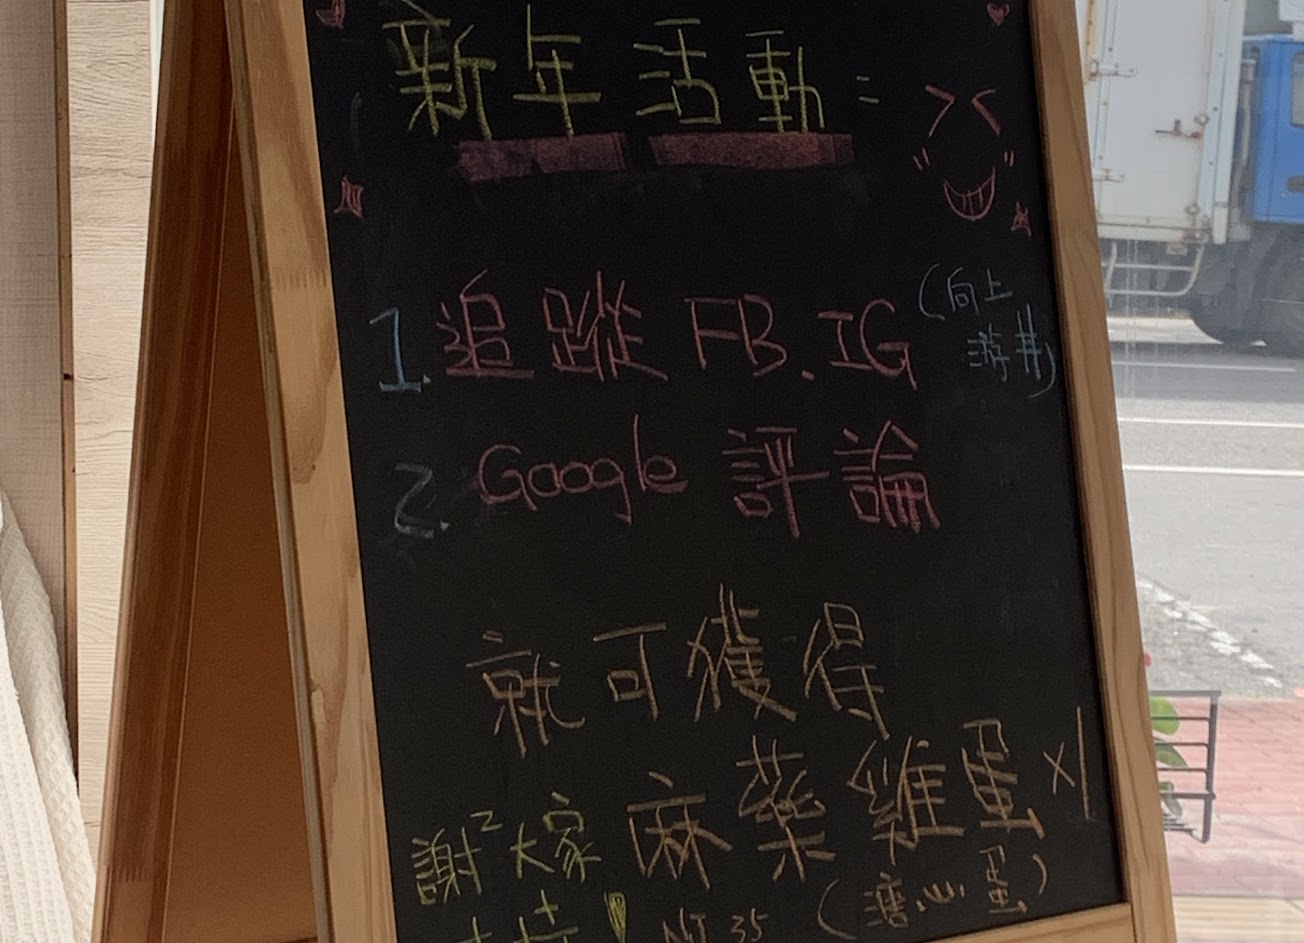 新年活動:
1. 追蹤 FB. IG (向上
游丼)
2. Google 評論
就可獲得
麻藥雞蛋 x1
(溏心蛋)
謝² 大家
NT 35